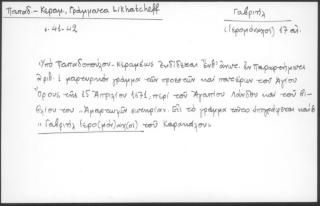 Παπαδ.-Κεραμ., Γράμματα Likhatcheff
Γαβριήλ
σ. 41-42
(ἱερομόναχος) 17 αἰ.
Ὑπὸ Παπαδοπούλου-Κεραμέως ἐκδίδεται ἔνθ' ἀνωτ. ἐν Παραρτήματι
ἀριθ. 1 μαρτυρικὸν γράμμα τῶν προεστῶν καὶ πατέρων τοῦ Ἁγίου
Ὄρους, τῆς 15 Ἀπριλίου 1671, περὶ τοῦ Ἀγαπίου Λάνδου καὶ τοῦ βι-
βλίου του "Ἁμαρτωλῶν σωτηρία". Εἰς τὸ γράμμα τοῦτο ὑπογράφεται καὶ ὁ
"Γαβριήλ ἱερο(μόν)αχ(ος) τοῦ Καρακάλου".